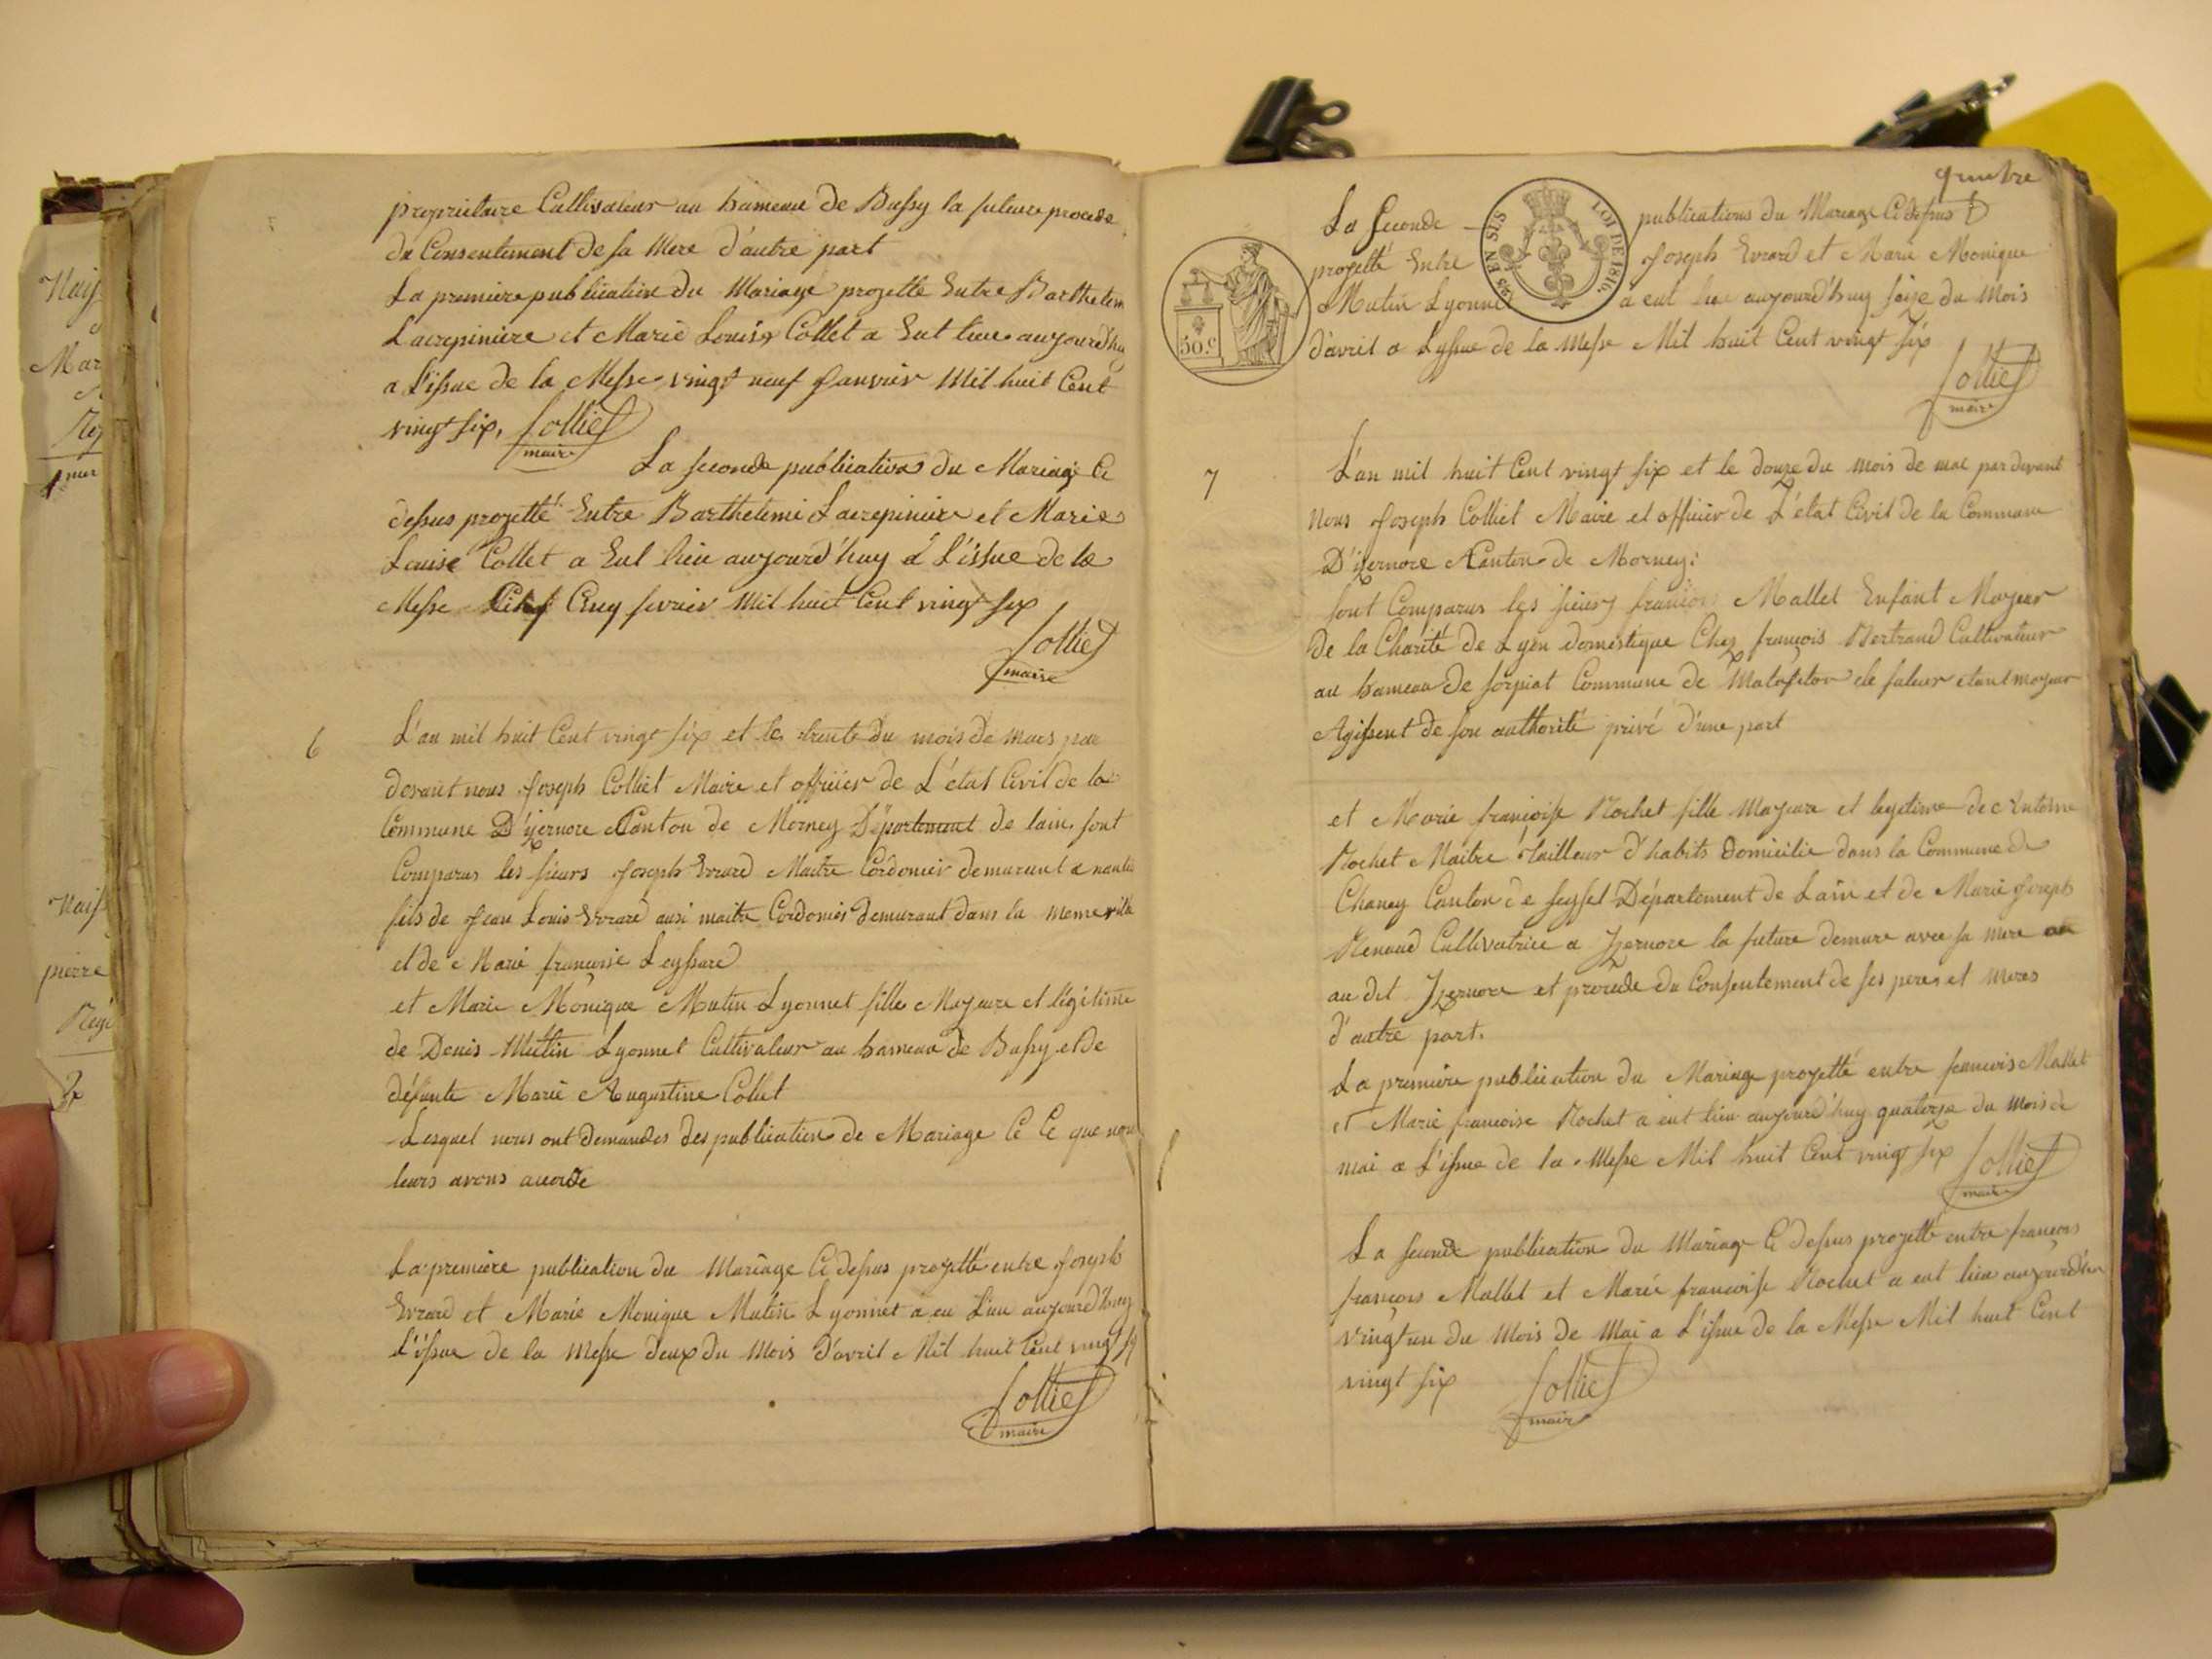 propriétaire Cultivateur au hameau de Bussy la future procede
du Consentement de sa Mere d'autre part
La premiere publication du Mariage projetté Entre Barthelem
Lacrepiniere et Marie Louise Collet a Eut lieu aujourd'hu
a l'issue de la Messe vingt neuf Janvier Mil huit Cent
vingt six, Colliet
maire
La seconde publication du Mariage Ci
dessus projetté Entre Barthelemi Lacrepiniere et Marie
Louise Collet a Eut lieu aujourd'huy a L'issue de la
Messe Cinq fevrier Mil huit Cent vingt six
Colliet
maire
6
L'an mil huit Cent vingt six et le trente du mois de mars par
devant nous Joseph Colliet Maire et officier de L'état Civil de la
Commune D'izernore Canton de Morney Département de lain. sont
Comparus les sieurs Joseph Evrard Maitre Cordonier demurant a nantua
fils de Jean Louis Evrard ausi maitre Cordonier demurant dans la meme ville
et de Marie françoise Leyssard
et Marie Monique Mutin Lyonnet fille Majeure et légitime
de Denis Mutin Lyonnet Cultivateur au hameau de Bussy et de
défunte Marie Augustine Collet
Lesquel nous ont demandes des publication de Mariage Ce Ce que nou
leurs avons accorde
La premiere publication du Mariage Ci dessus projetté entre Joseph
Evrard et Marie Monique Mutin Lyonnet a eu Lieu aujourd'huy
L'issue de la Messe deux du Mois d'avril Mil huit Cent vingt six
Colliet
maire
quatre
La Seconde publications du Mariage Ci dessus
TIMBRE EN SUS LOI DE 1816
projetté Entre Joseph Evrard et Marie Monique
Mutin Lyonnet a eut lieu aujourd'huy seize du Mois
50.c
d'avril a Lyssue de la Messe Mil huit Cent vingt Six
Colliet
maire
7
L'an mil huit Cent vingt six et le douze du mois de mai par devant
Nous Joseph Colliet Maire et officier de L'état Civil de la Commune
D'izernore Canton de Morney:
sont Comparus les sieurs françois Mallet Enfant Majeur
de la Charité de Lyon domestique Chez françois Bertrand Cultivateur
au hameau de sorpiat Commune de Matafelon le futur etant majeur
Agissent de son authorité privé d'une part
et Marie françoise Rochet fille Majeure et legitime de Antoine
Rochet Maitre Tailleur d'habits Domicilie dans la Commune de
Chaney Canton de seyssel Département de Lain et de Marie Joseph
Renaud Cultivatrice a Izernore la future demure avec sa mere
au dit Izernore et procede du Consentement de ses peres et meres
d'autre part.
La premiere publication du Mariage projetté entre francois Mallet
et Marie francoise Rochet a eut lieu aujourd'huy quatorze du mois de
mai a L'issue de la Messe Mil huit Cent vingt six Colliet
maire
La seconde publication du Mariage Ci dessus projetté entre françois
françois Mallet et Marie francoise Rochet a eut lieu aujourd'hu
vingt un du Mois de Mai a L'issue de la Messe Mil huit Cent
vingt six Colliet
maire